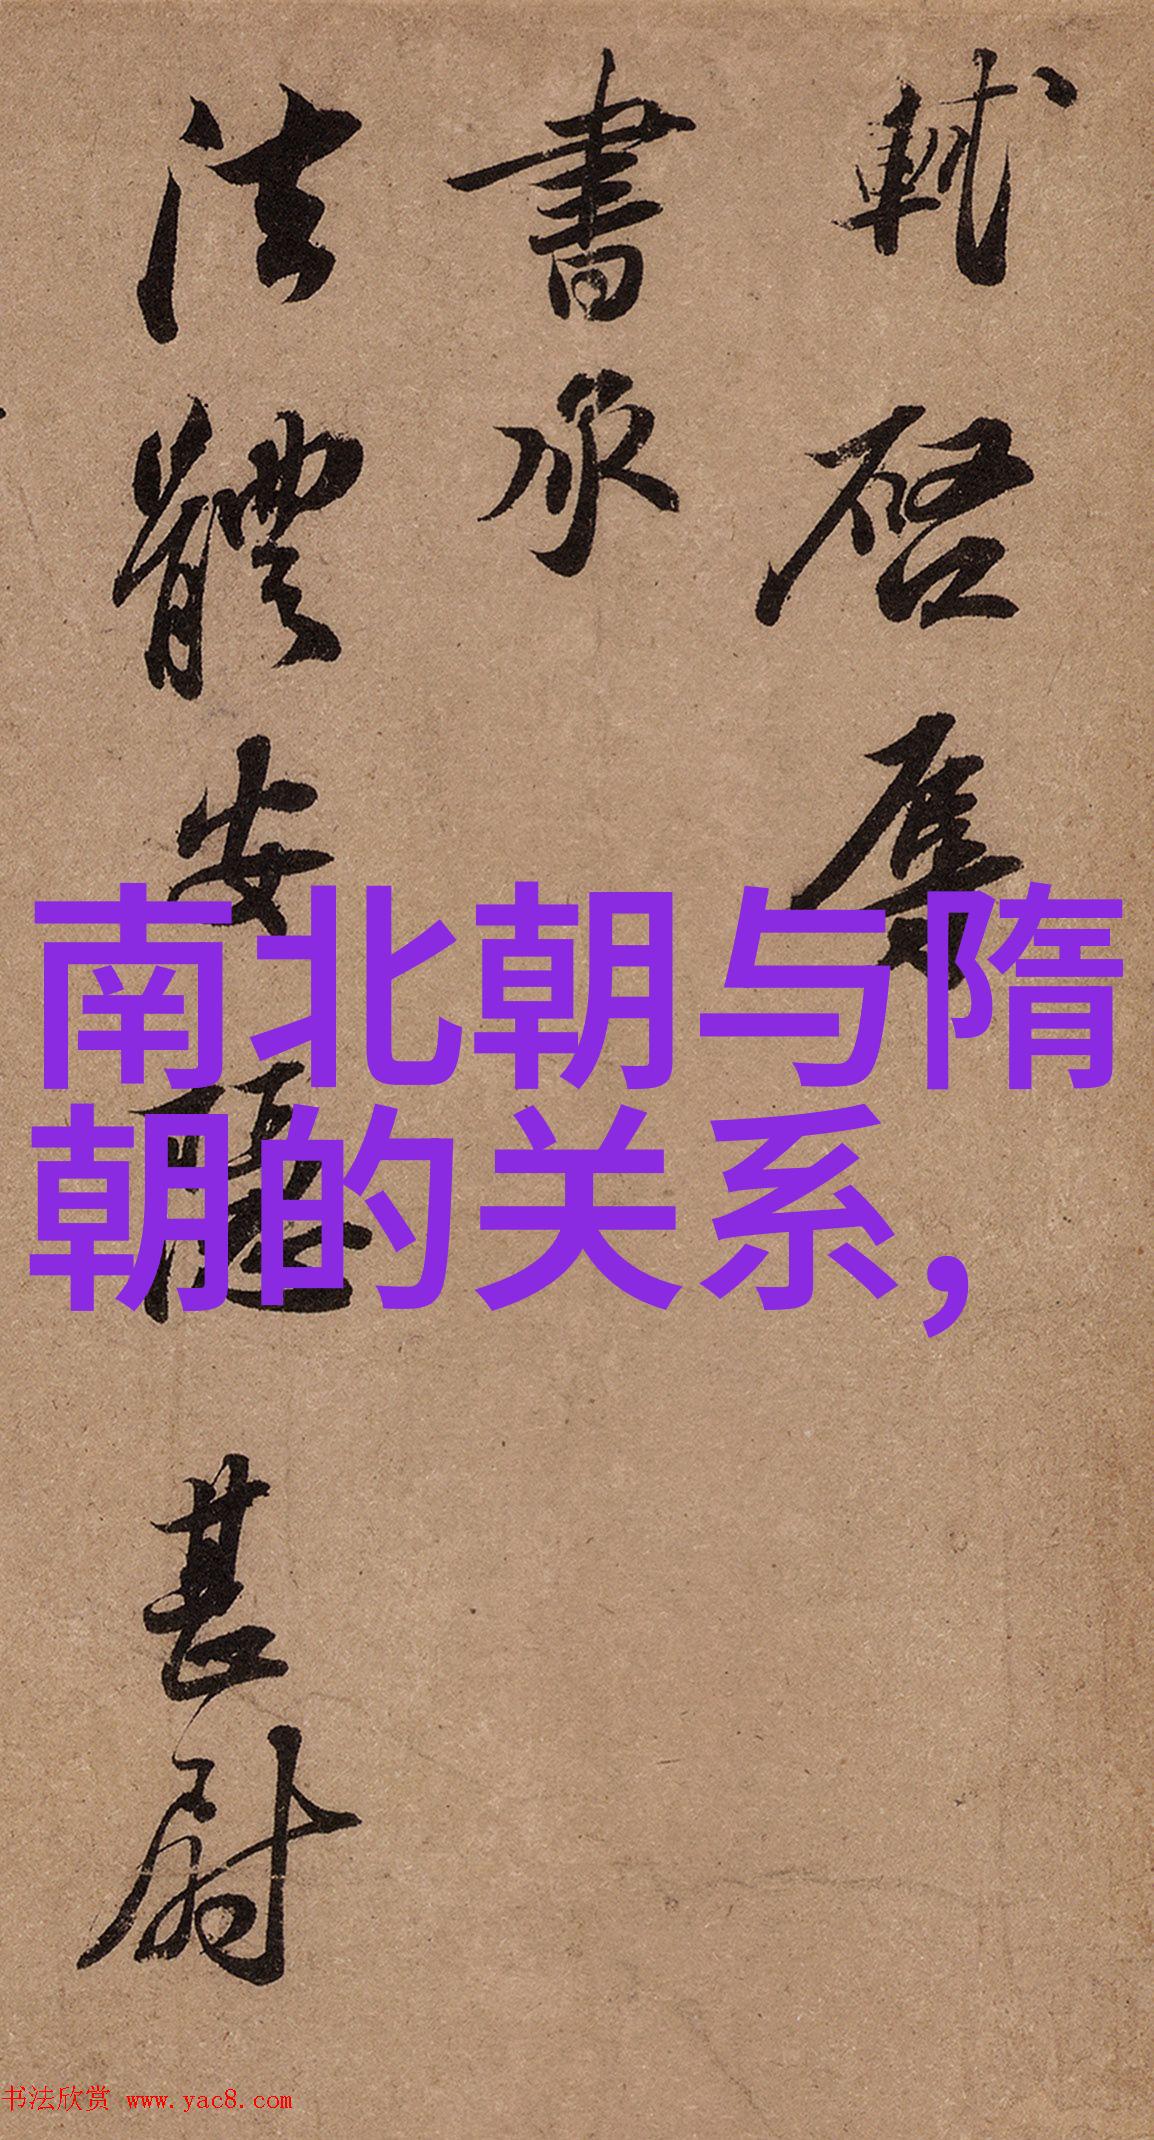 軾啓辱
書承
法體安隱甚慰
南北朝与隋
朝的关系,
书法欣赏 www.yac8.com